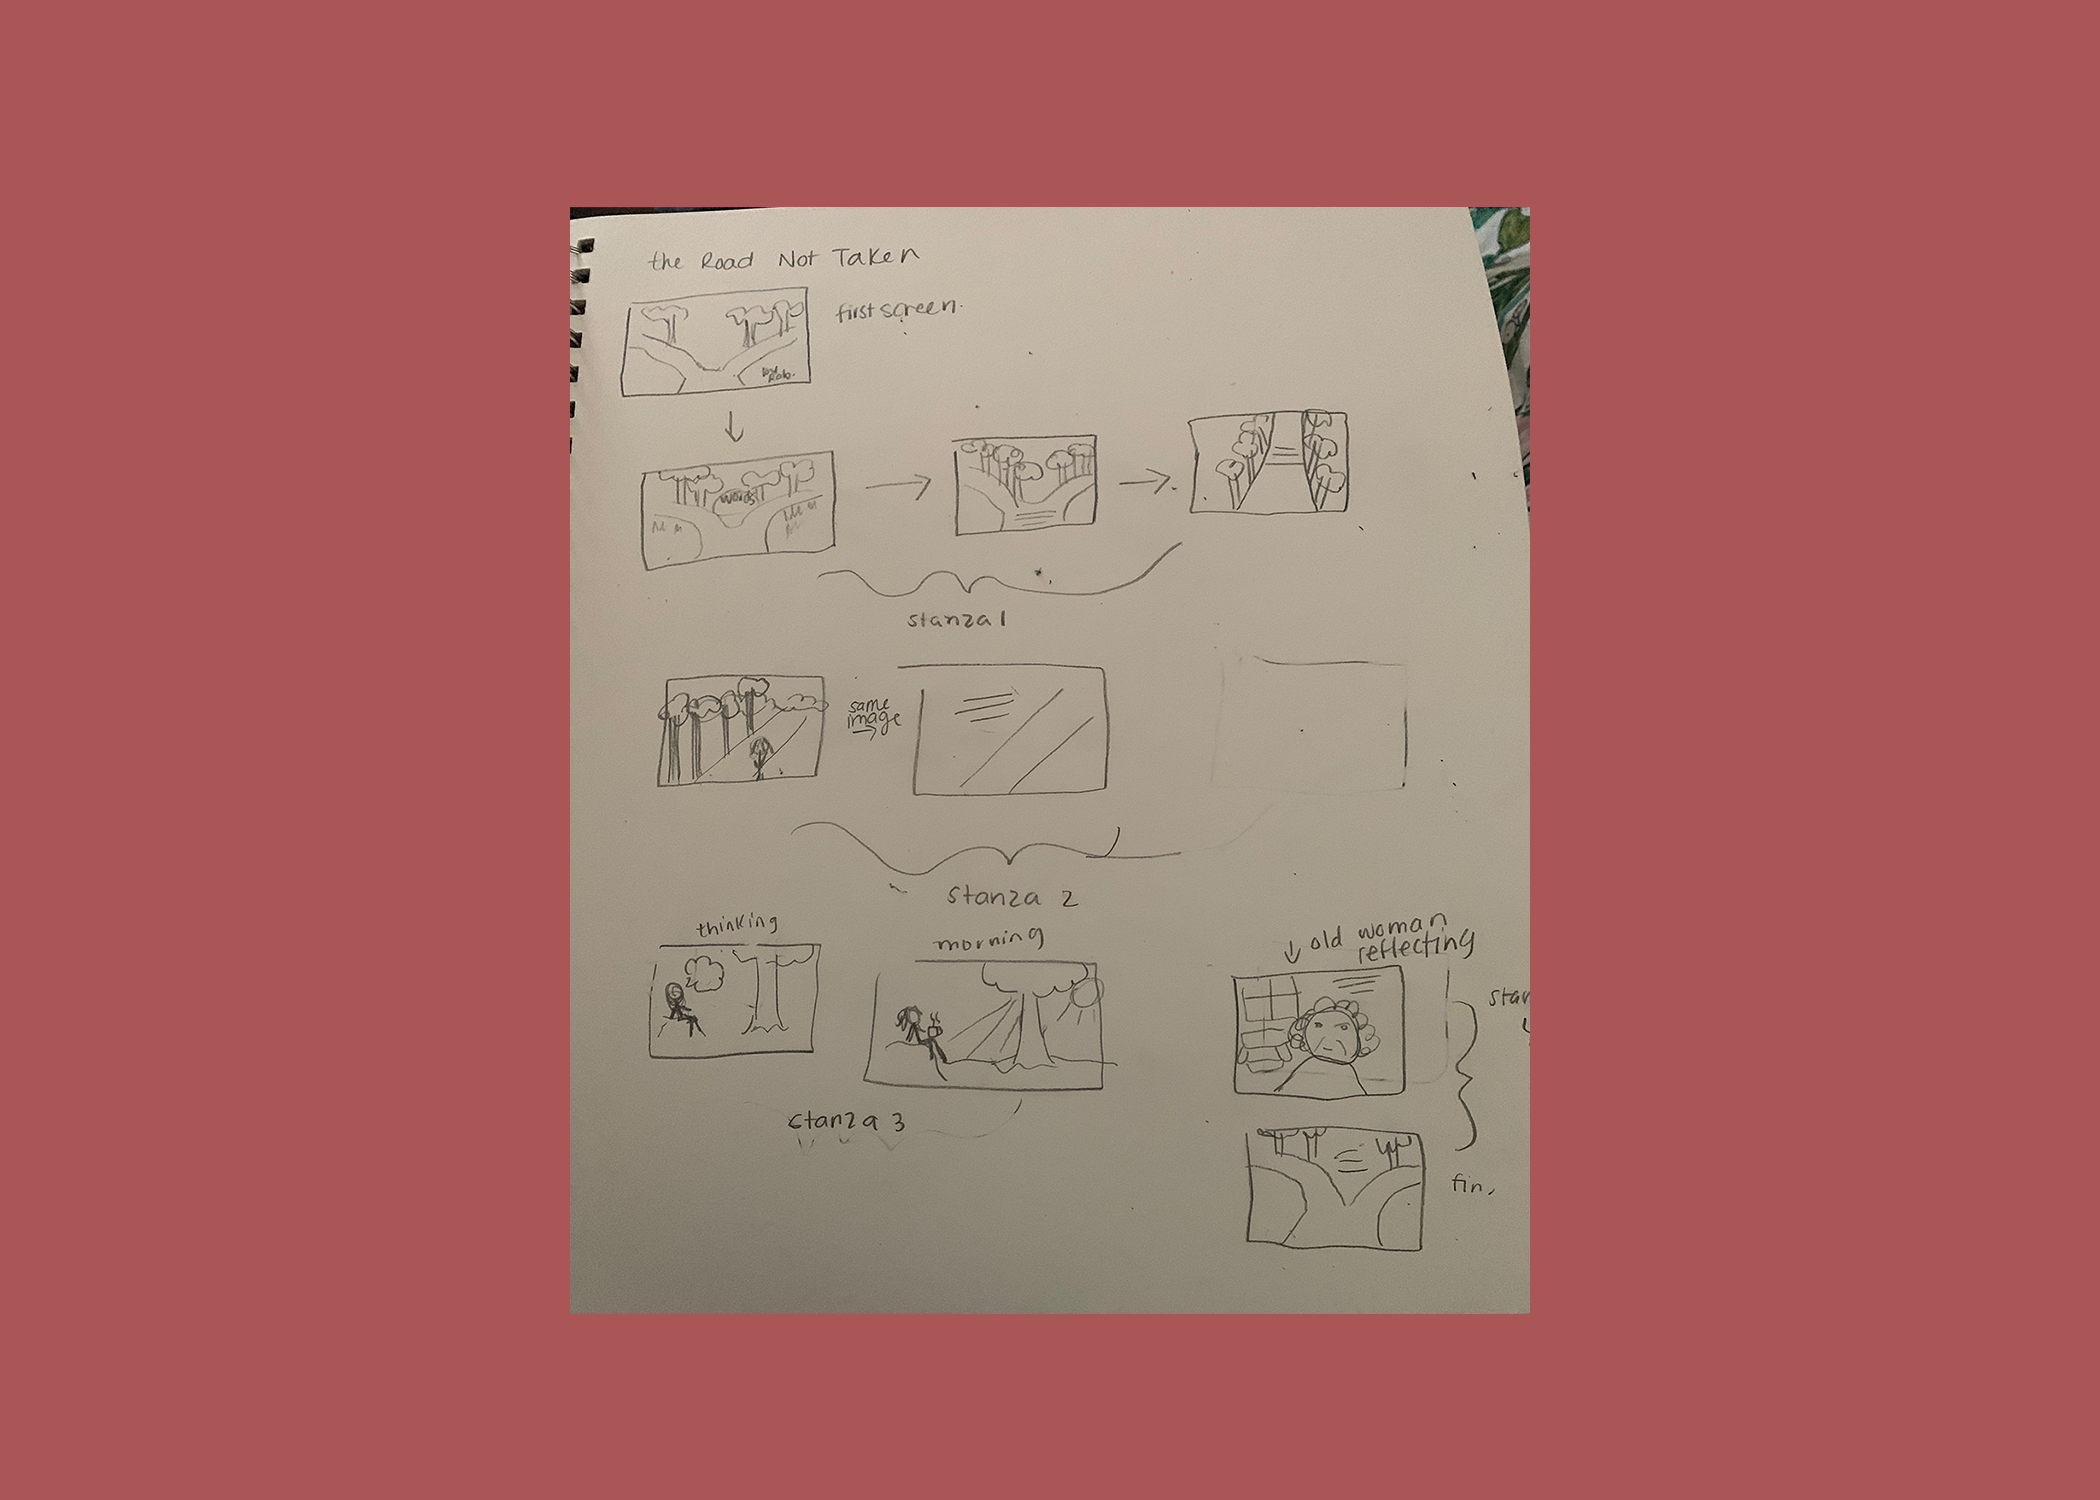 the Road Not Taken
first screen.
words
stanza 1
same
image
stanza 2
thinking
morning
old woman
reflecting
stanza 3
fin.